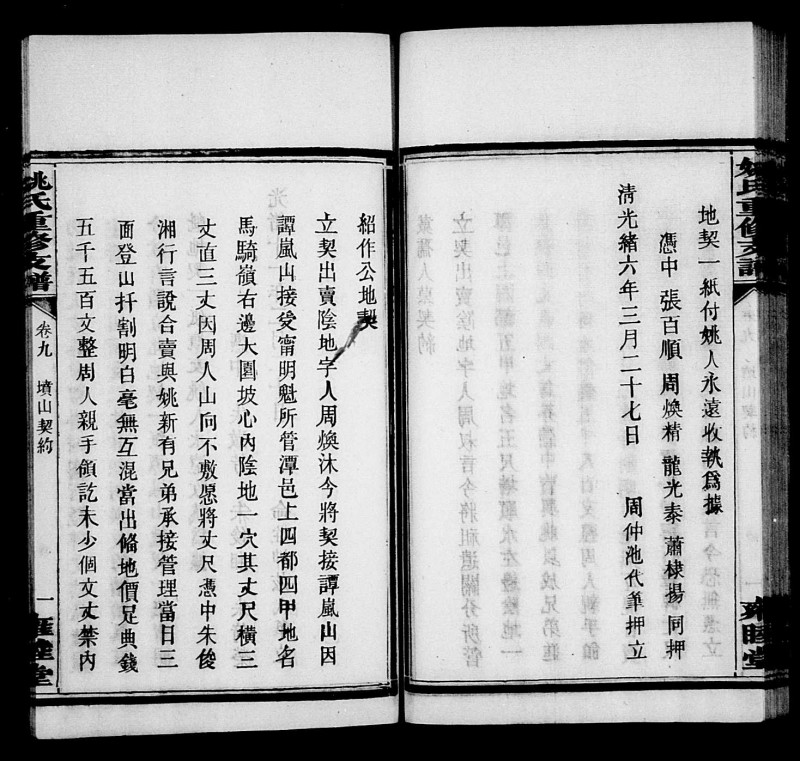 地契一紙付姚人永遠收執爲據
憑中 張百順 周煥精 龍光泰 蕭棣揚 同押
清光緒六年三月二十七日 周仲池代筆押立
紹作公地契
立契出賣陰地字人周煥沐今將契接譚嵐山因
譚嵐山接受甯明魁所管潭邑上四都四甲地名
馬騎嶺右邊大園坡心內陰地一穴其丈尺橫三
丈直三丈因周人山向不敷愿將丈尺憑中朱俊
湘行言說合賣與姚新有兄弟承接管理當日三
面登山扦割明白毫無互混當出俻地價足典錢
五千五百文整周人親手領訖未少個文丈禁內
姚氏重修支譜 卷九 墳山契約 一 雍睦堂